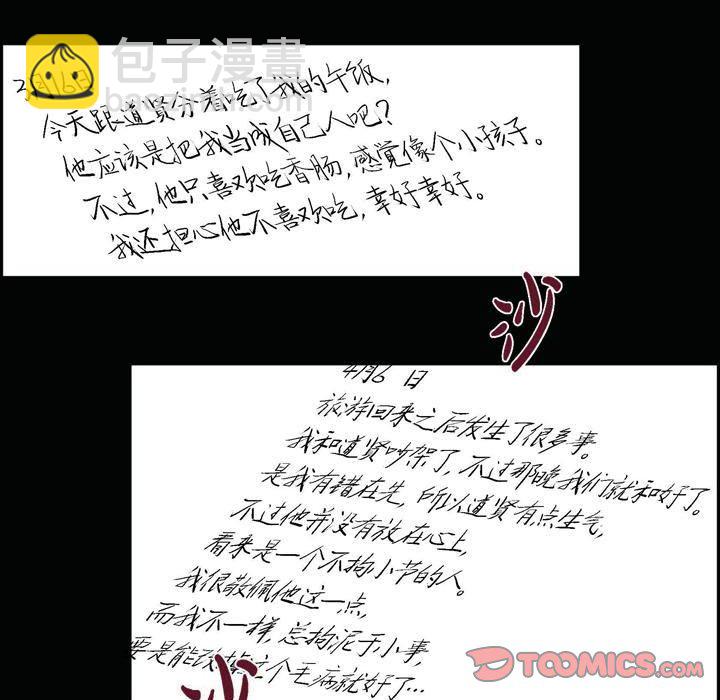 包子漫畫
2月
今天跟道贤分着吃了我的午饭,
他应该是把我当成自己人吧?
不过,他只喜欢吃香肠,感觉像个小孩子。
我还担心他不喜欢吃,幸好幸好。
沙
4月6日
旅游回来之后发生了很多事。
我和道贤吵架了,不过那晚我们就和好了。
是我有错在先,所以道贤有点生气,
不过他并没有放在心上,
看来是一个不拘小节的人。
我很敬佩他这一点,
而我不一样,总拘泥于小事,
要是能改掉这个毛病就好了…
沙
TOOMICS.COM